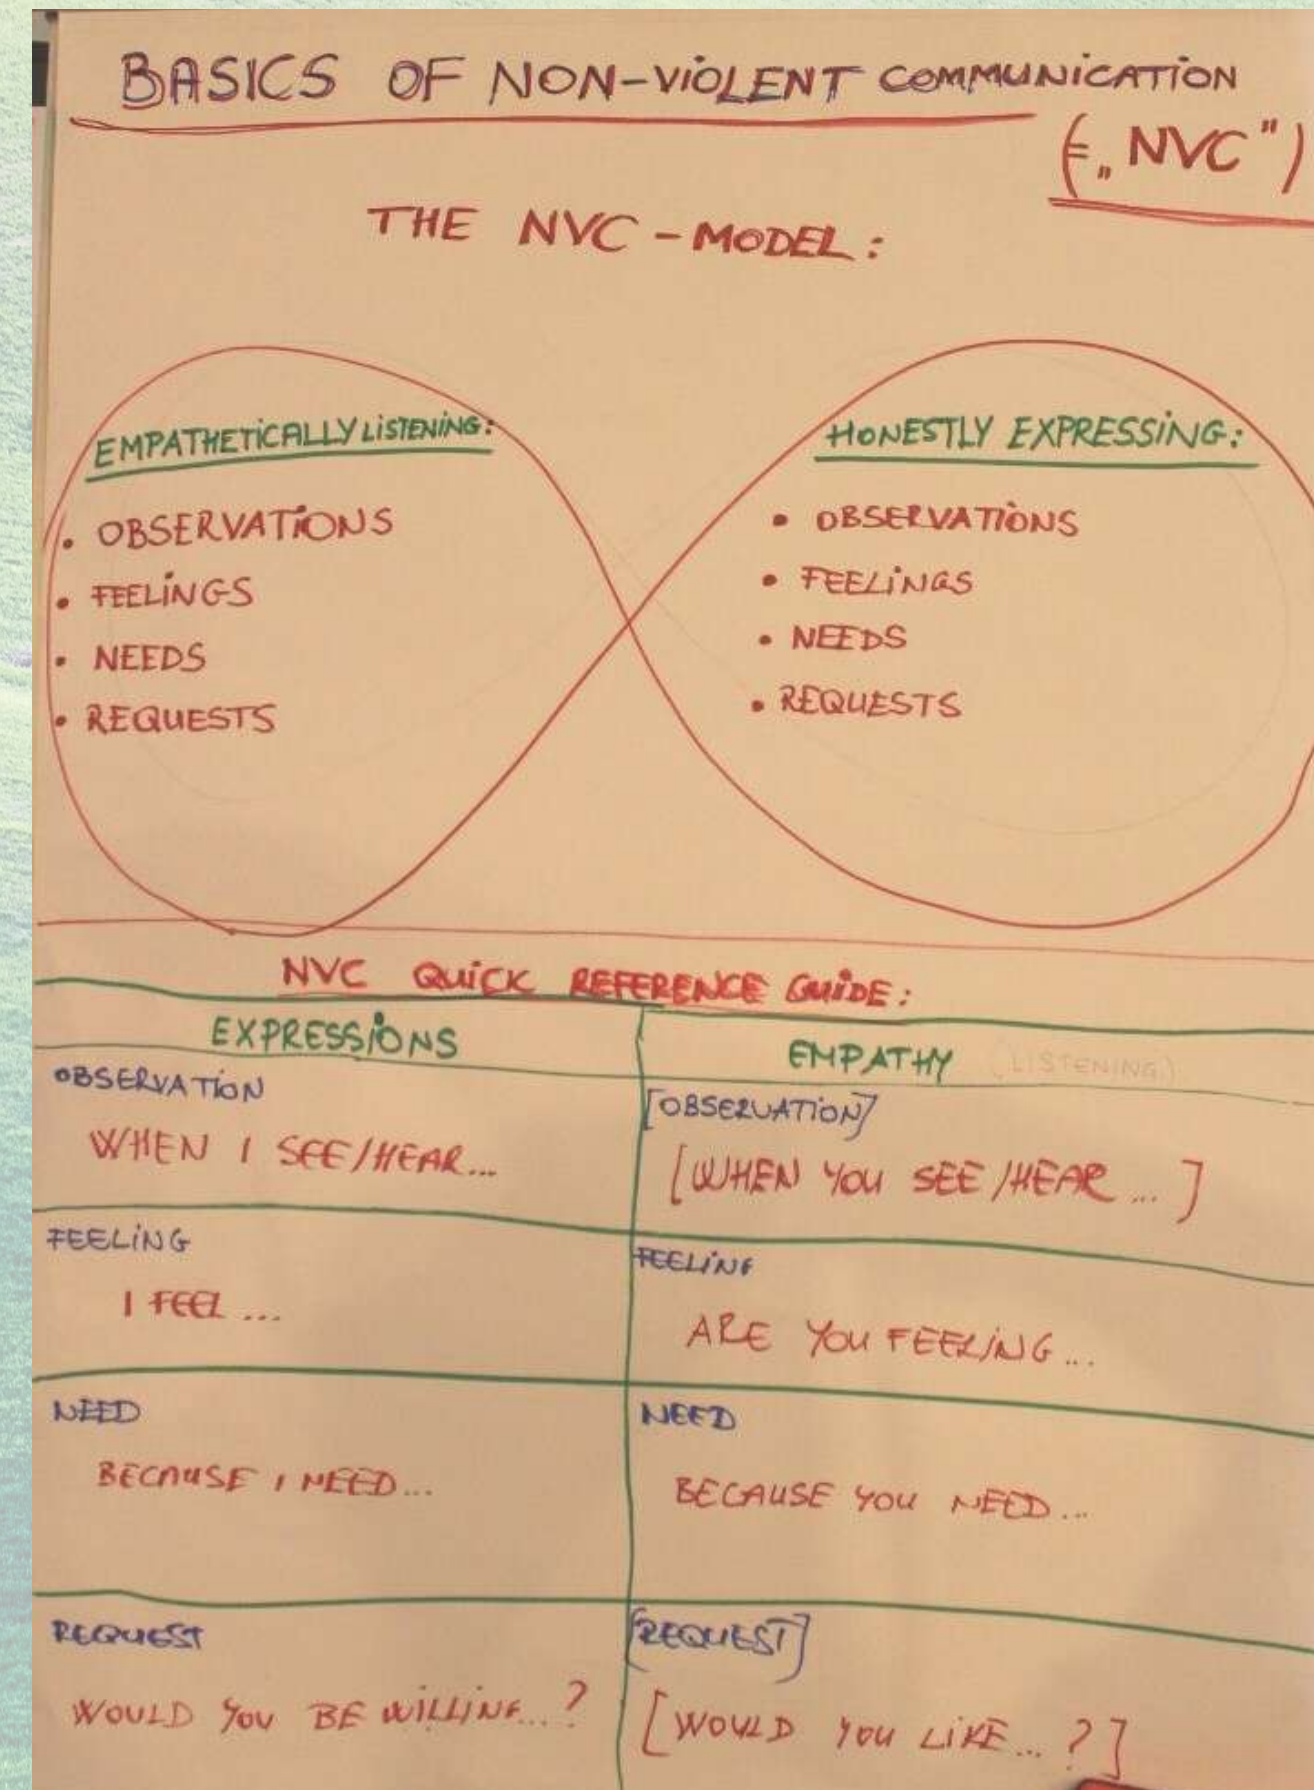 BASICS OF NON-VIOLENT COMMUNICATION
(= „NVC")
THE NVC - MODEL:
EMPATHETICALLY LISTENING:
• OBSERVATIONS
• FEELINGS
• NEEDS
• REQUESTS
HONESTLY EXPRESSING:
• OBSERVATIONS
• FEELINGS
• NEEDS
• REQUESTS
NVC QUICK REFERENCE GUIDE:
EXPRESSIONS
EMPATHY (LISTENING)
OBSERVATION
WHEN I SEE/HEAR...
[OBSERVATION]
[WHEN YOU SEE/HEAR ... ]
FEELING
I FEEL ...
FEELING
ARE YOU FEELING...
NEED
BECAUSE I NEED...
NEED
BECAUSE YOU NEED...
REQUEST
WOULD YOU BE WILLING...?
[REQUEST]
[WOULD YOU LIKE... ?]